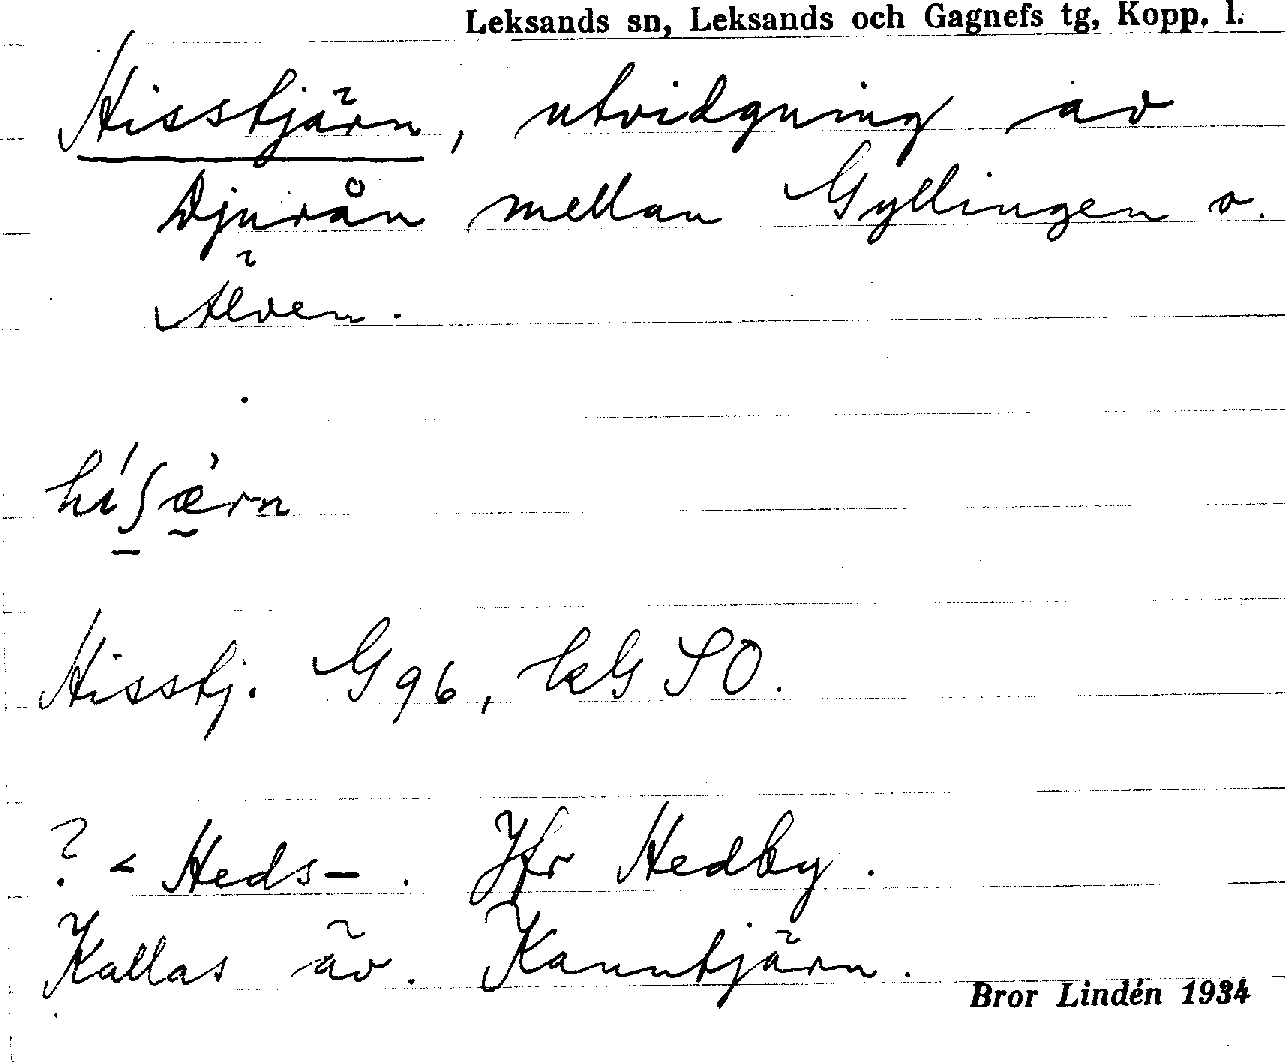 Leksands sn, Leksands och Gagnefs tg, Kopp. l.
Hisstjärn, utvidgning av
Djurån mellan Gyllingen o.
Älven.
híʃæ̀rn
Hisstj. G 96, kG SO.
? < Heds-. Jfr Hedby.
Kallas äv. Kanntjärn.
Bror Lindén 1934